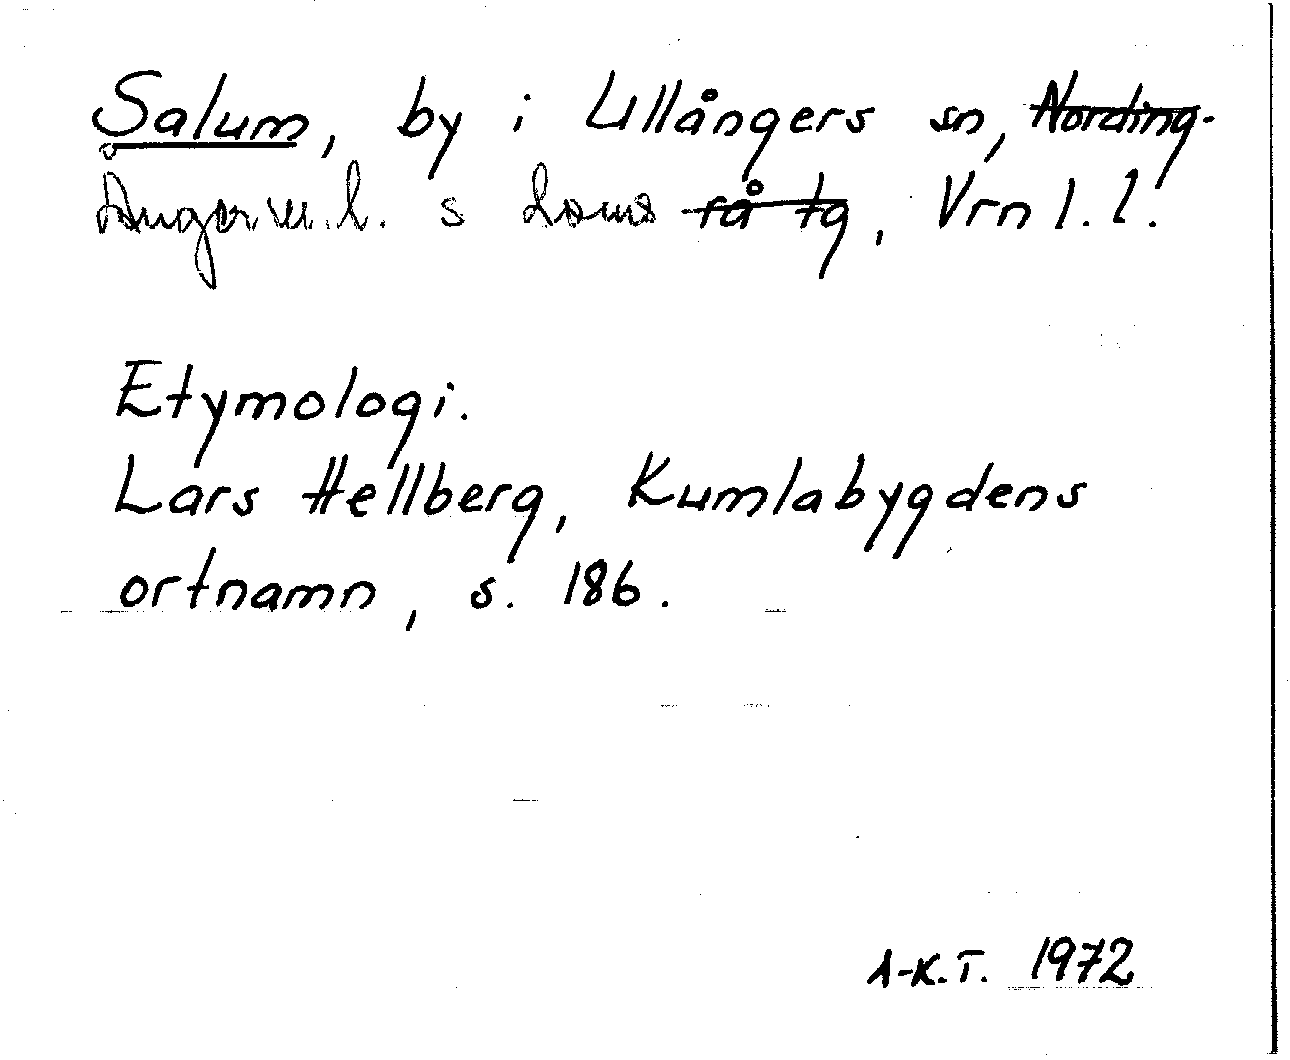 Salum, by i Ullångers sn, Nording-
Ångerm.l. s doms rå tg, Vrn l. l.
Etymologi.
Lars Hellberg, Kumlabygdens
ortnamn, s. 186.
A-K.T. 1972